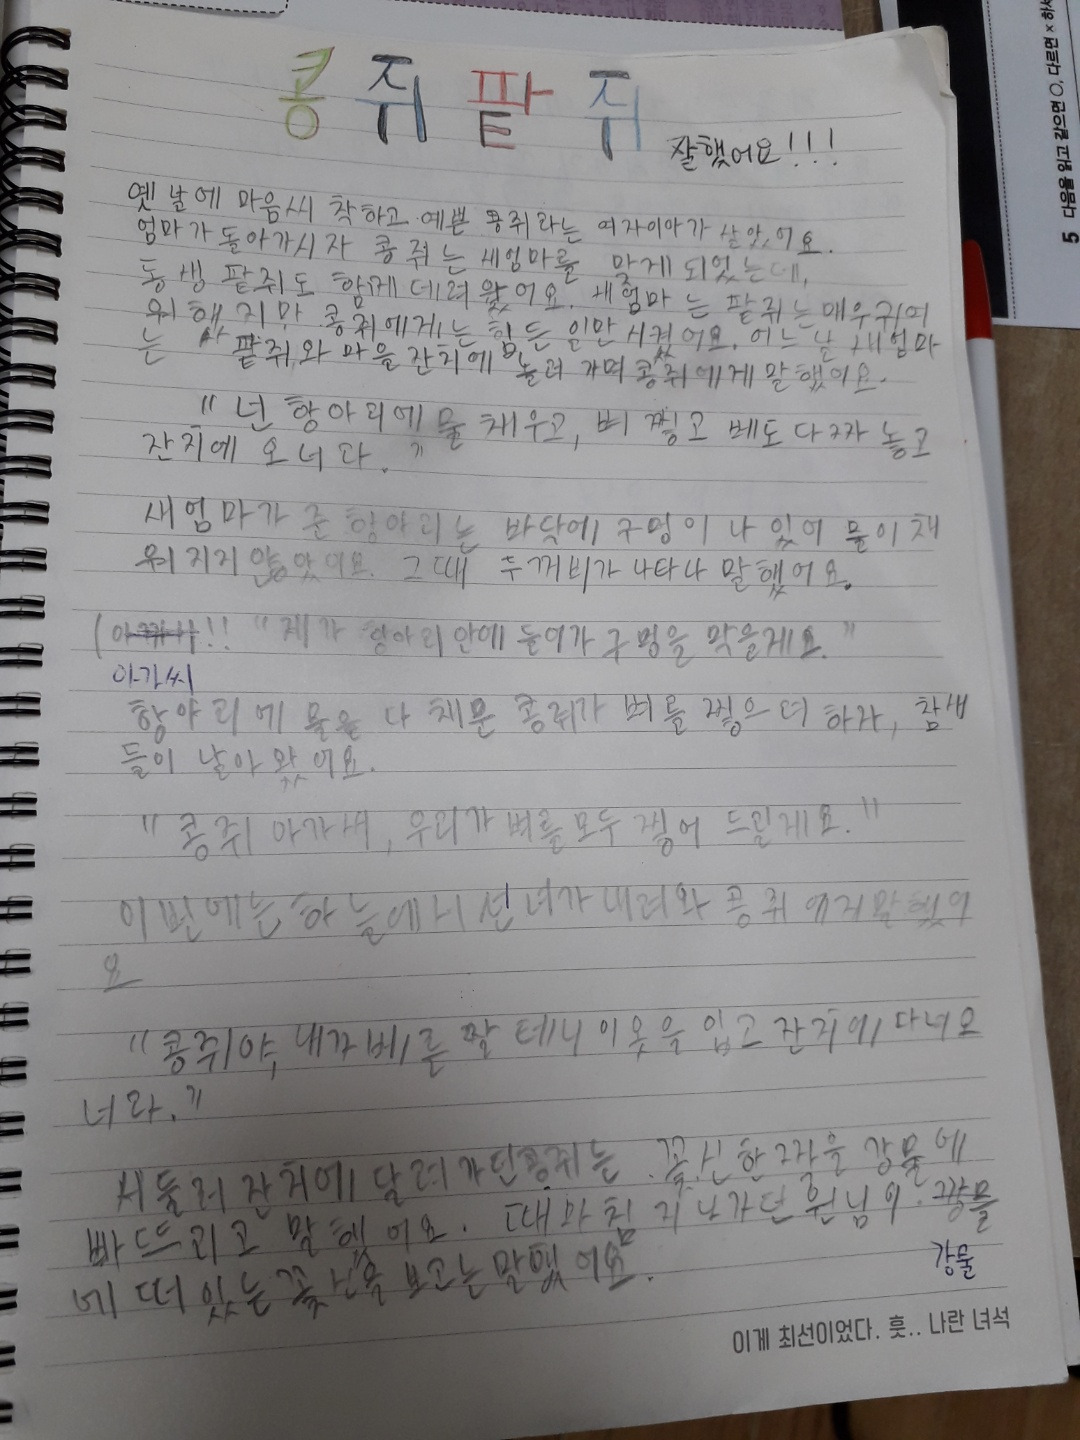 콩쥐 팥쥐
잘했어요!!!
옛날에 마음씨 착하고 예쁜 콩쥐라는 여자아이가 살았어요.
엄마가 돌아가시자 콩쥐는 새엄마를 맞게 되었는데,
동생 팥쥐도 함께 데려왔어요. 새엄마는 팥쥐는 매우 귀여
워했지만 콩쥐에게는 힘든 일만 시켰어요. 어느 날 새엄마
는 팥쥐와 마을 잔치에 놀러 가며 콩쥐에게 말했어요.
"넌 항아리에 물 채우고, 벼 찧고 베도 다 짜 놓고
잔치에 오너라."
새엄마가 준 항아리는 바닥에 구멍이 나 있어 물이 채
워지지 않았어요. 그때 두꺼비가 나타나 말했어요.
!! "제가 항아리 안에 들어가 구멍을 막을게요."
아가씨
항아리에 물을 다 채운 콩쥐가 벼를 찧으려 하자, 참새
들이 날아 왔어요.
"콩쥐 아가씨, 우리가 벼를 모두 찧어 드릴게요."
이번에는 하늘에서 선녀가 내려와 콩쥐에게 말했어
요
"콩쥐야, 내가 베를 짤 테니 이 옷을 입고 잔치에 다녀오
너라."
서둘러 잔치에 달려가던 콩쥐는 꽃신 한 짝을 강물에
빠드리고 말했어요. 때마침 지나가던 원님이 강물
에 떠 있는 꽃신을 보고는 말했어요.
강물
이게 최선이었다. 훗.. 나란 녀석
5 다음을 읽고 같으면 ○, 다르면 ×